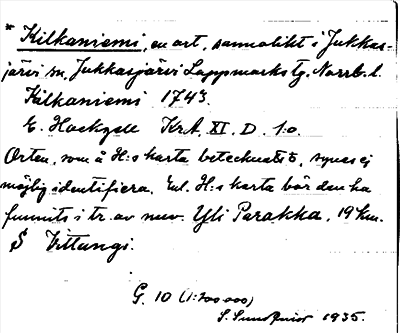 * Kilkaniemi, en ort, sannolikt i Jukkas-
järvi sn, Jukkasjärvi Lappmarks tg. Norrb. l.
Kilkaniemi 1743.
E. Hackzell KrA, XI. D. 10.
Orten, som å H:s karta betecknats, synes ej
möjlig identifiera. Enl. H:s karta bör den ha
funnits i tr. av nuv. Yli Parakka, 19 km.
S Vittangi.
G. 10 (1:200 000)
S. 1935.